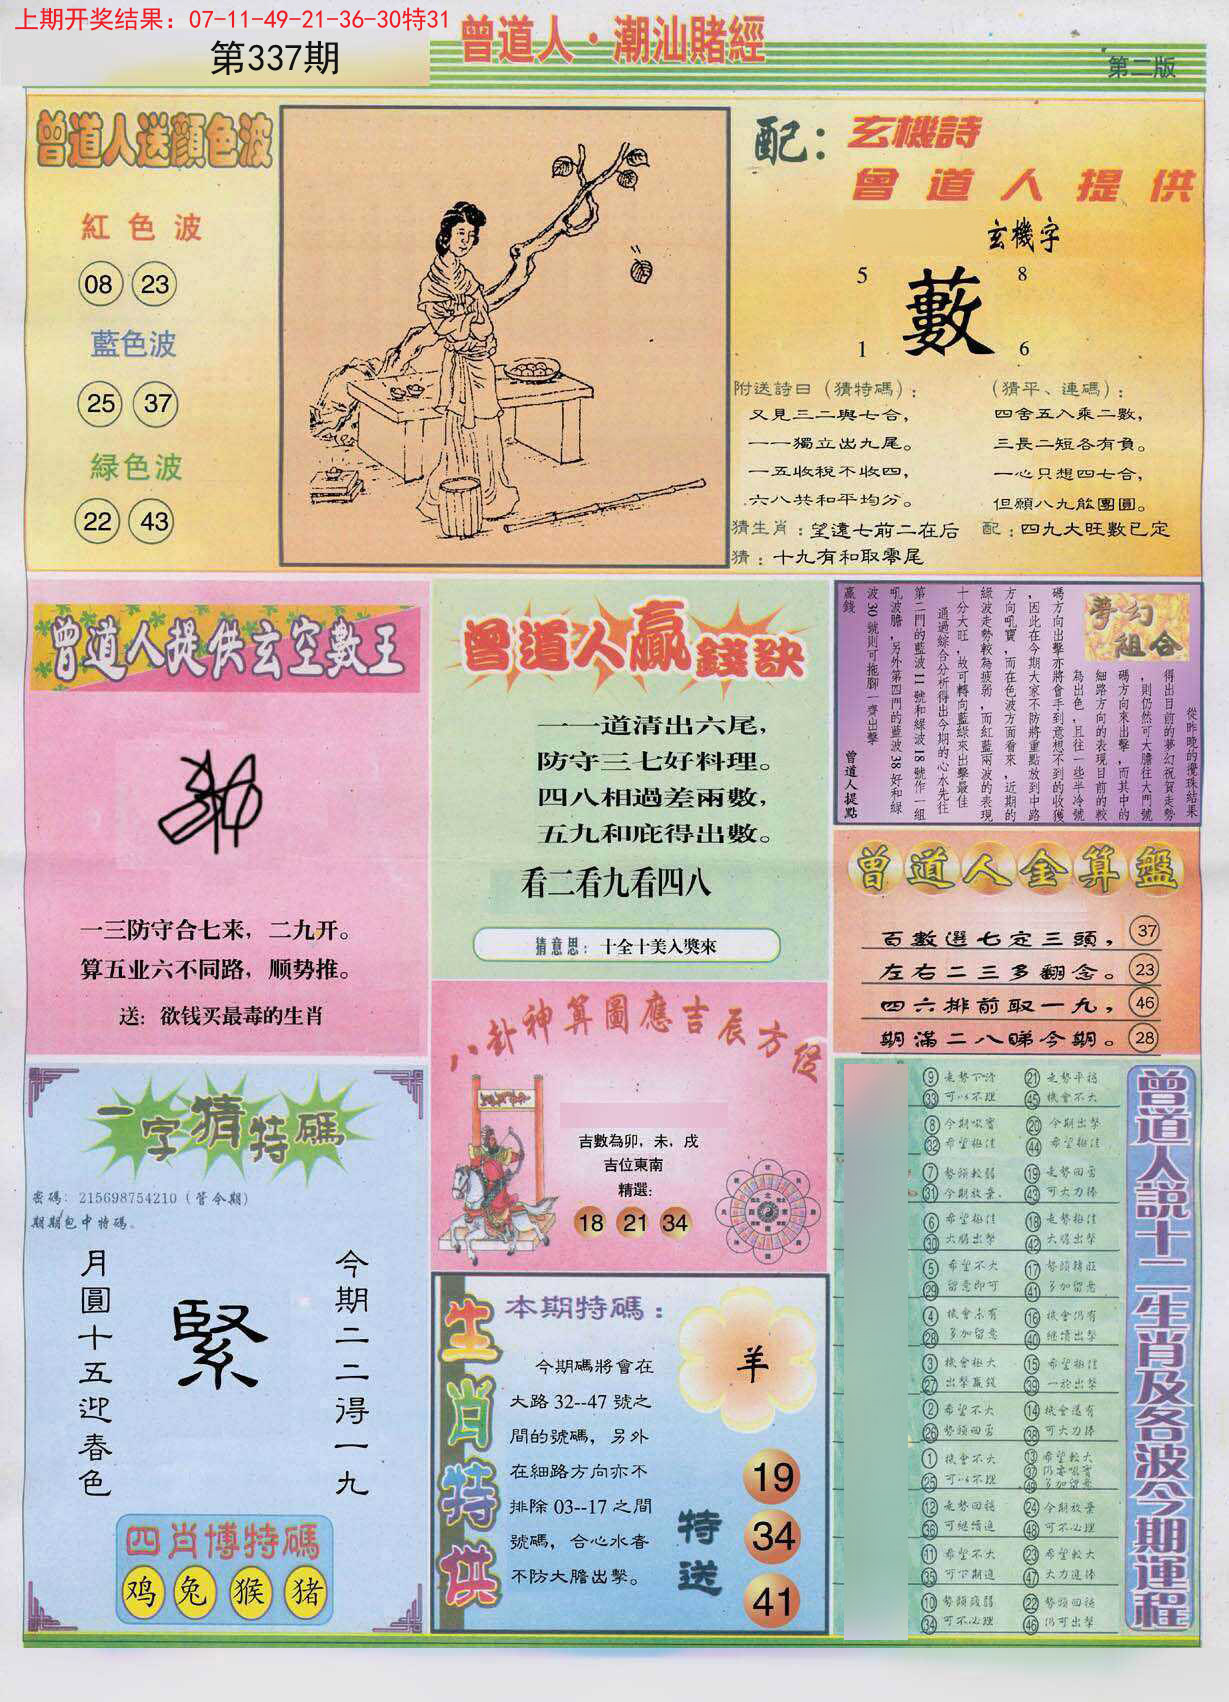 上期开奖结果：07-11-49-21-36-30特31
第337期
曾道人·潮汕賭經
第二版
曾道人送顔色波
紅色波
08 23
藍色波
25 37
緑色波
22 43
配：玄機詩
曾道人提供
玄機字
5 8
藪
1 6
附送詩曰（猜特碼）：
又見三二與七合，
一一獨立出九尾。
一五收税不收四，
六八共和平均分。
（猜平、連碼）：
四舍五入乘二數，
三長二短各有負。
一心只想四七合，
但願八九能團圓。
猜生肖：望遠七前二在后
配：四九大旺數已定
猜：十九有和取零尾
曾道人提供玄空數王
一三防守合七来，二九开。
算五业六不同路，顺势推。
送：欲钱买最毒的生肖
曾道人贏錢訣
一一道清出六尾，
防守三七好料理。
四八相過差兩數，
五九和庇得出數。
看二看九看四八
猜意思：十全十美入獎來
夢幻組合
從昨晚的攪珠結果
得出目前的夢幻祝賀走勢
，則仍然可大膽往大門號
碼方向來出擊，而其中的
細路方向的表現目前的較
為出色，且往一些半冷號
碼方向出擊亦將會手到意想不到的收獲
，因此在今期大家不防將重點放到中路
方向吼寶，而在色波方面看來，近期的
綠波走勢較為疲弱，而紅藍兩波的表現
十分大旺，故可轉向藍綠來出擊最佳
通過綜合分析得出今期的心水先往
第二門的藍波11號和綠波18號作一組
吼波膽，另外第四門的藍波38好和綠
波30號則可拖腳一齊出擊
贏錢
曾道人提點
曾道人金算盤
百數選七定三頭， 37
左右二三多翻念。 23
四六排前取一九， 46
期滿二八睇今期。 28
八卦神算圖應吉辰方位
吉數為卯，未，戌
吉位東南
精選：
18 21 34
一字猜特碼
密碼：215698754210（管今期）
期期包中特碼。
今期二二得一九
緊
月圓十五迎春色
四肖博特碼
鸡 兔 猴 猪
生肖特供
本期特碼：
今期碼將會在
大路32--47號之
間的號碼，另外
在細路方向亦不
排除03--17之間
號碼，合心水者
不防大膽出擊。
羊
特送
19
34
41
曾道人説十二生肖及各波今期運程
⑨ 33 可以不理
21 走勢平穩 45 機會不大
⑧ 今期吸實 32 希望極佳
20 今期出擊 44 希望極佳
⑦ 勢頭較弱 31 今期放棄.
19 走勢回勇 43 可大力捧
⑥ 希望極佳 30 大膽出擊
18 走勢極佳 42 大膽出擊
⑤ 希望不大 29 留意即可
17 勢頭轉旺 41 多加留意
④ 機會未有 28 多加留意
16 機會仍有 40 繼續出擊
③ 機會極大 27 出擊贏錢
15 希望極佳 39 一於出擊
② 希望不大 26 勢頭回勇
14 機會還有 38 可大力捧
① 機會不大 25 可以不理
13 希望較大 37 49 多加留意
12 走勢回穩 36 可繼續追
24 今期放棄 48 可不必理
11 希望不大 35 可下期追
23 希望較大 47 大力追捧
10 勢頭疲弱 34 可不必理
22 勢頭回穩 46 仍可出擊